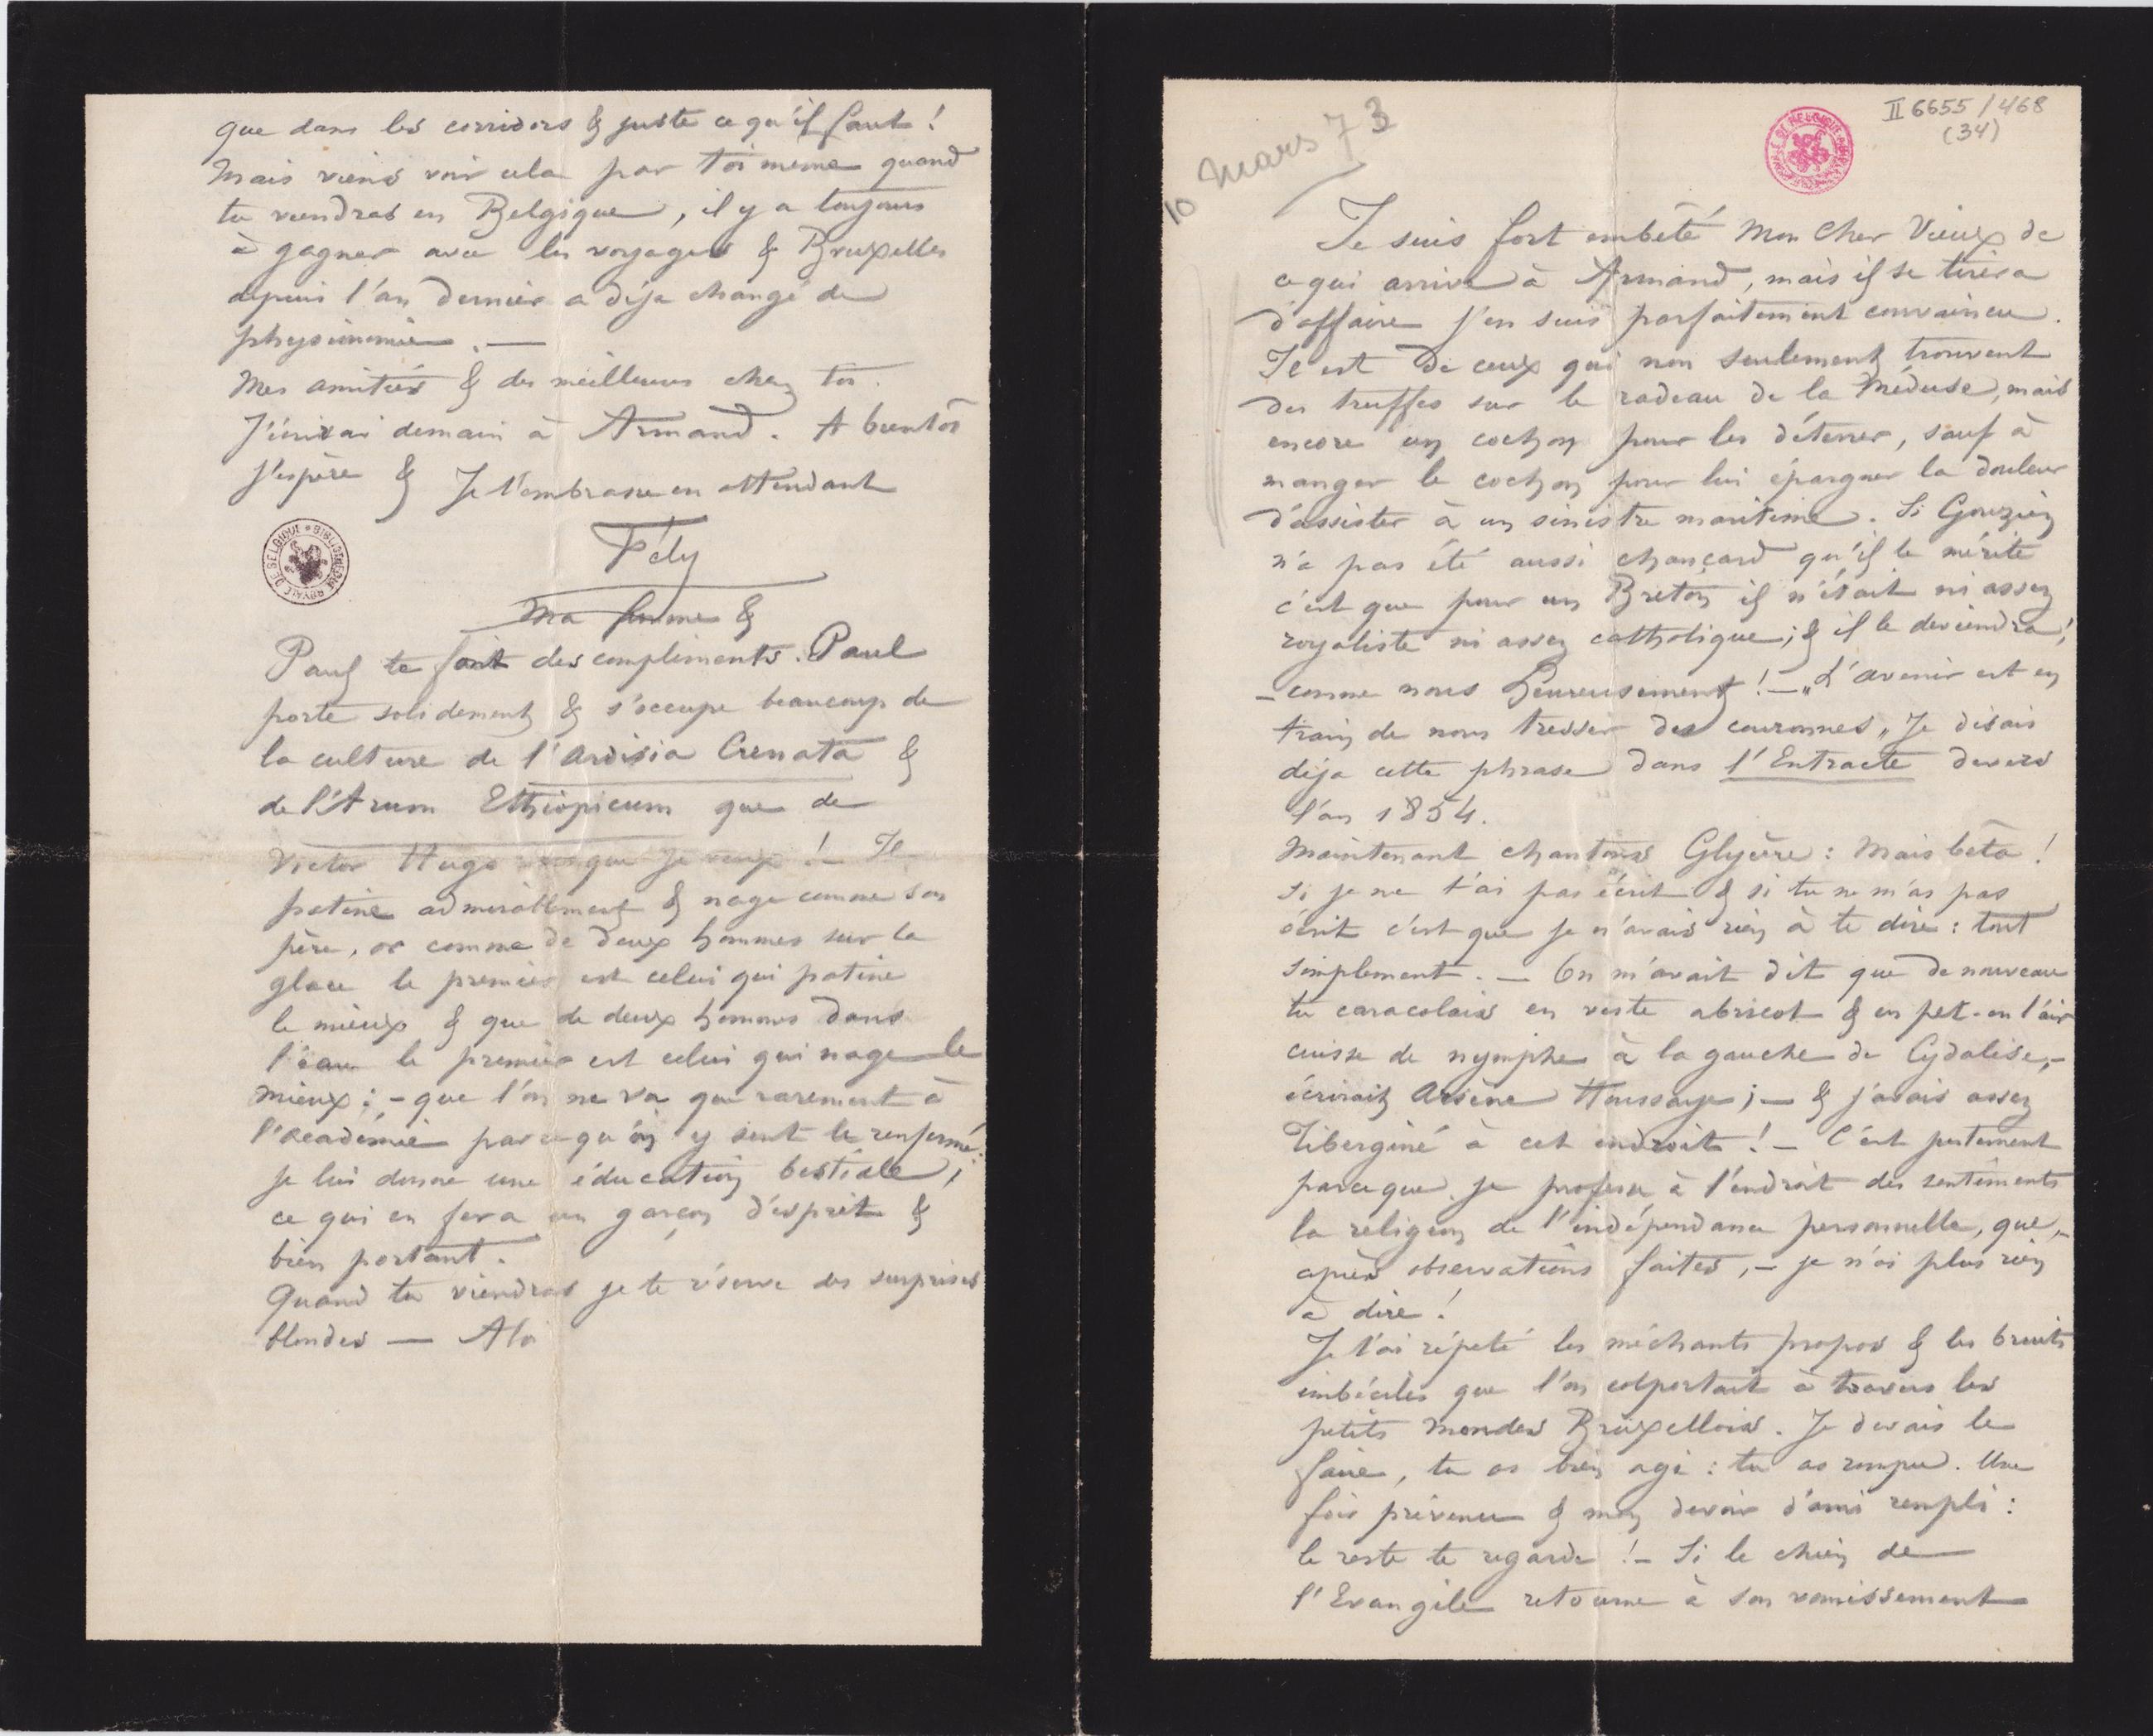 que dans les corridors & juste ce qu'il faut !
Mais viens voir cela par toi meme quand
tu viendras en Belgique, il y a toujours
à gagner avec les voyages & Bruxelles
depuis l'an dernier a déja changé de
physionomie. —
Mes amitiés & des meilleures chez toi.
J'écrirai demain à Armand. A bientot
j'espère & Je t'embrasse en attendant
Fély
Ma femme &
Paul te fait des compliments. Paul
porte solidement & s'occupe beaucoup de
la culture de l'Ardisia Crenata &
de l'Arum Ethiopicum que de
Victor Hugo que je veux ! — Il
patine admirablement & nage comme son
père, or comme de deux hommes sur la
glace le premier est celui qui patine
le mieux & que de deux hommes dans
l'eau le premier est celui qui nage le
mieux ; – que l'on ne va que rarement à
l'academie parce qu'on y sent le renfermé :
je lui donne une éducation bestiale,
ce qui en fera un garçon d'esprit &
bien portant.
Quand tu viendras je te réserve des surprises
blondes — A toi
II 6655 / 468
(34)
10 Mars 73
BIBLIOTHÈQUE ROYALE DE BELGIQUE
Je suis fort embêté Mon Cher Vieux de
ce qui arrive à Armand, mais il se tirera
d'affaire j'en suis parfaitement convaincu.
Il est de ceux qui non seulement trouvent
des truffes sur le radeau de la Méduse, mais
encore un cochon pour les déterrer, sauf à
manger le cochon pour lui épargner la douleur
d'assister à un sinistre maritime. Si Gouzien
n'a pas été aussi chançard qu'il le mérite
c'est que pour un Breton il n'était ni assez
royaliste ni assez catholique ; & il le deviendra !
– comme nous heureusement ! — „L'avenir est en
train de nous tresser des couronnes„ Je disais
déja cette phrase dans l'Entracte devers
l'an 1854.
Maintenant chantons Glycère : Mais bêta !
si je ne t'ai pas écrit & si tu ne m'as pas
écrit c'est que je n'avais rien à te dire : tout
simplement. — On m'avait dit que de nouveau
tu caracolais en veste abricot & en pet-en l'air
cuisse de nymphe à la gauche de Cydalise, –
écrirait Arsène Houssaye ; — & j'avais assez
Tiberginé à cet endroit ! — C'est justement
parceque je professe à l'endroit des sentiments
la religion de l'indépendance personnelle, que, –
après observations faites, – je n'ai plus rien
à dire !
Je t'ai répeté les méchants propos & les bruits
imbéciles que l'on colportait à travers les
petits mondes Bruxellois. Je devais le
faire, tu as bien agi : tu as rompu. Une
fois prévenu & mon devoir d'ami rempli :
le reste te regarde ! — Si le chien de
l'Evangile retourne à son vomissement